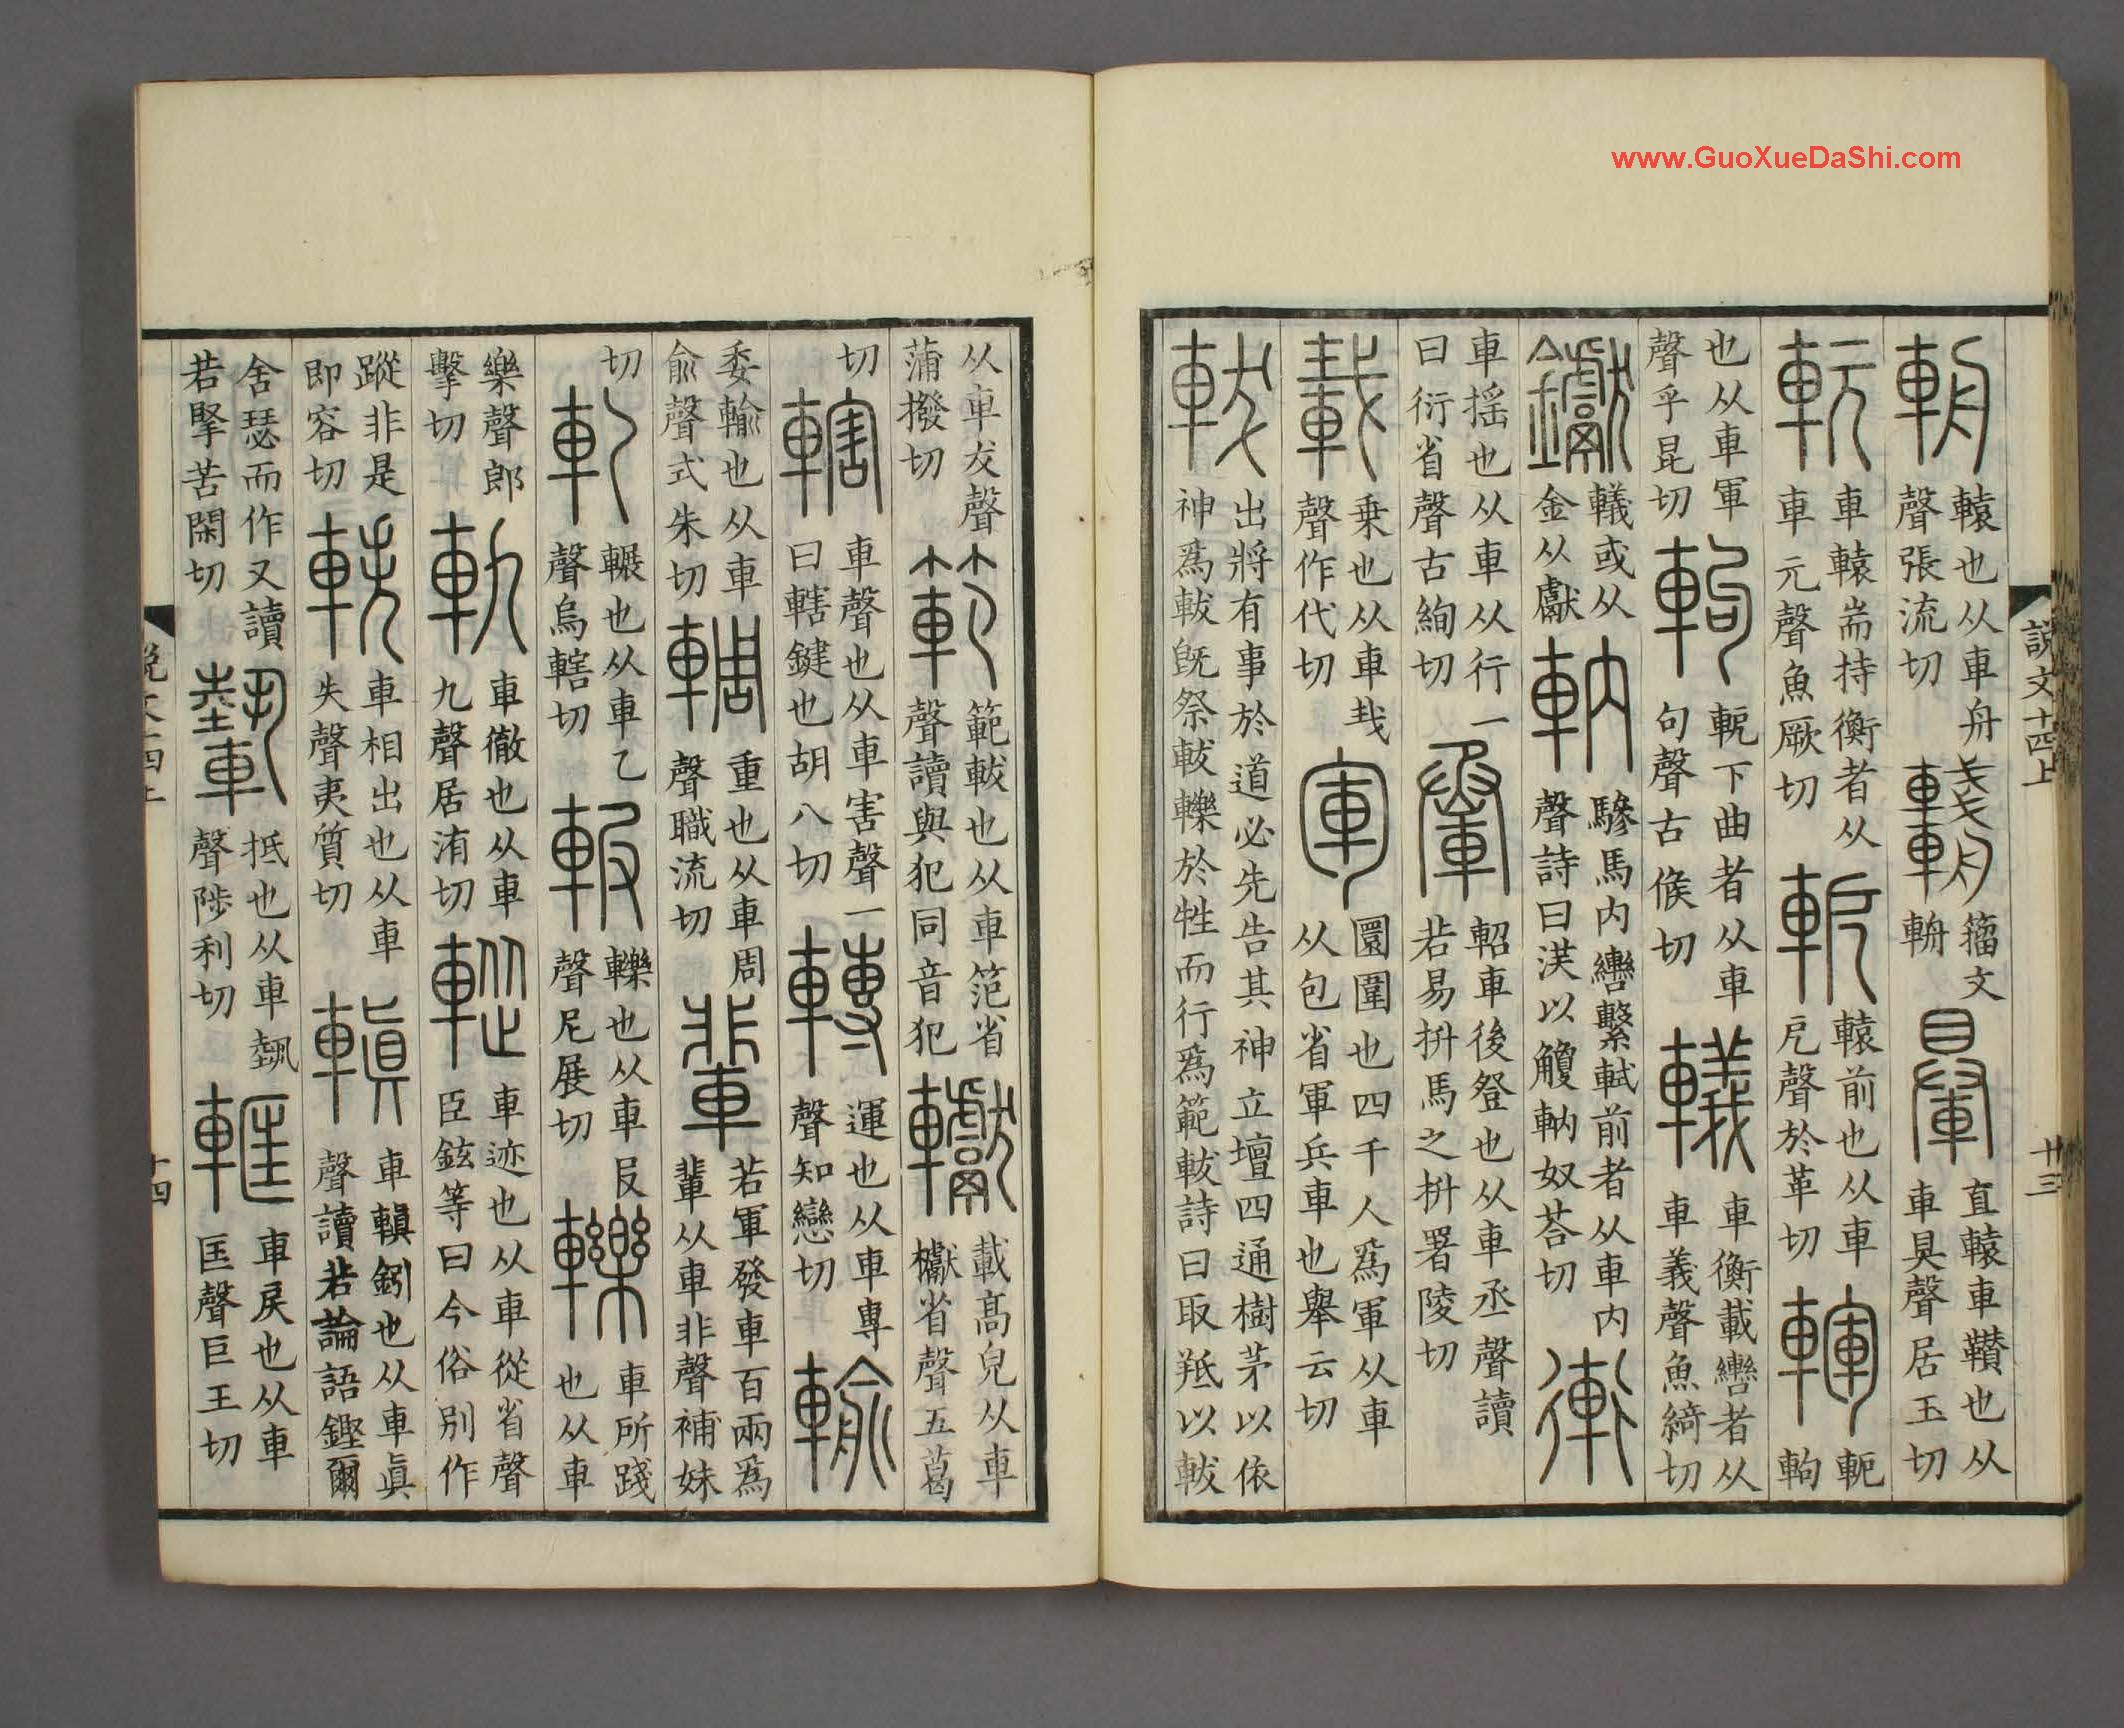 輈轅也从車舟聲張流切籒文輈直轅車也从車具聲居玉切
軏車轅耑持衡者从車元聲魚厥切軶轅前也从車戹聲於革切䡣軶軥
也从車軍聲乎昆切軥軶下曲者从車句聲古候切轙車衡載轡者从車義聲魚綺切
钀轙或从金从獻軜驂馬內轡繫軾前者从車內聲詩曰䓍以觼軜奴荅切衝
車搖也从車从行一曰衍省聲古絢切軺車後登也从車丞聲讀若易抍馬之抍署陵切
載乗也从車𢦏聲作代切軍圜圍也四千人爲軍从車从包省軍兵車也舉云切
軷出將有事於道必先告其神立壇四通樹茅以依神爲軷旣祭軷轢於牲而行爲範軷詩曰取羝以軷
从車犮聲蒲撥切範範軷也从車笵省聲讀與犯同音犯𨏿載高皃从車𣡌省聲五葛
切轄車聲也从車害聲一曰轄鍵也胡八切轉運也从車專聲知戀切輸
委輸也从車俞聲式朱切輖重也从車周聲職流切輩若軍發車百兩爲輩从車非聲補妹
切軋輾也从車乙聲烏轄切𨋚轢也从車𠬝聲尼展切轢車所踐也从車
樂聲郎擊切軌車徹也从車九聲居洧切䡮車迹也从車從省聲臣鉉等曰今俗別作
蹤非是即容切軼車相出也从車失聲夷質切䡩車䡩釰也从車眞聲讀若論語鏗爾
舍瑟而作又讀若掔苦閑切抵也从車埶聲陟利切軭車戾也从車匡聲巨王切
說文十四上
廿三
www.GuoXueDaShi.com